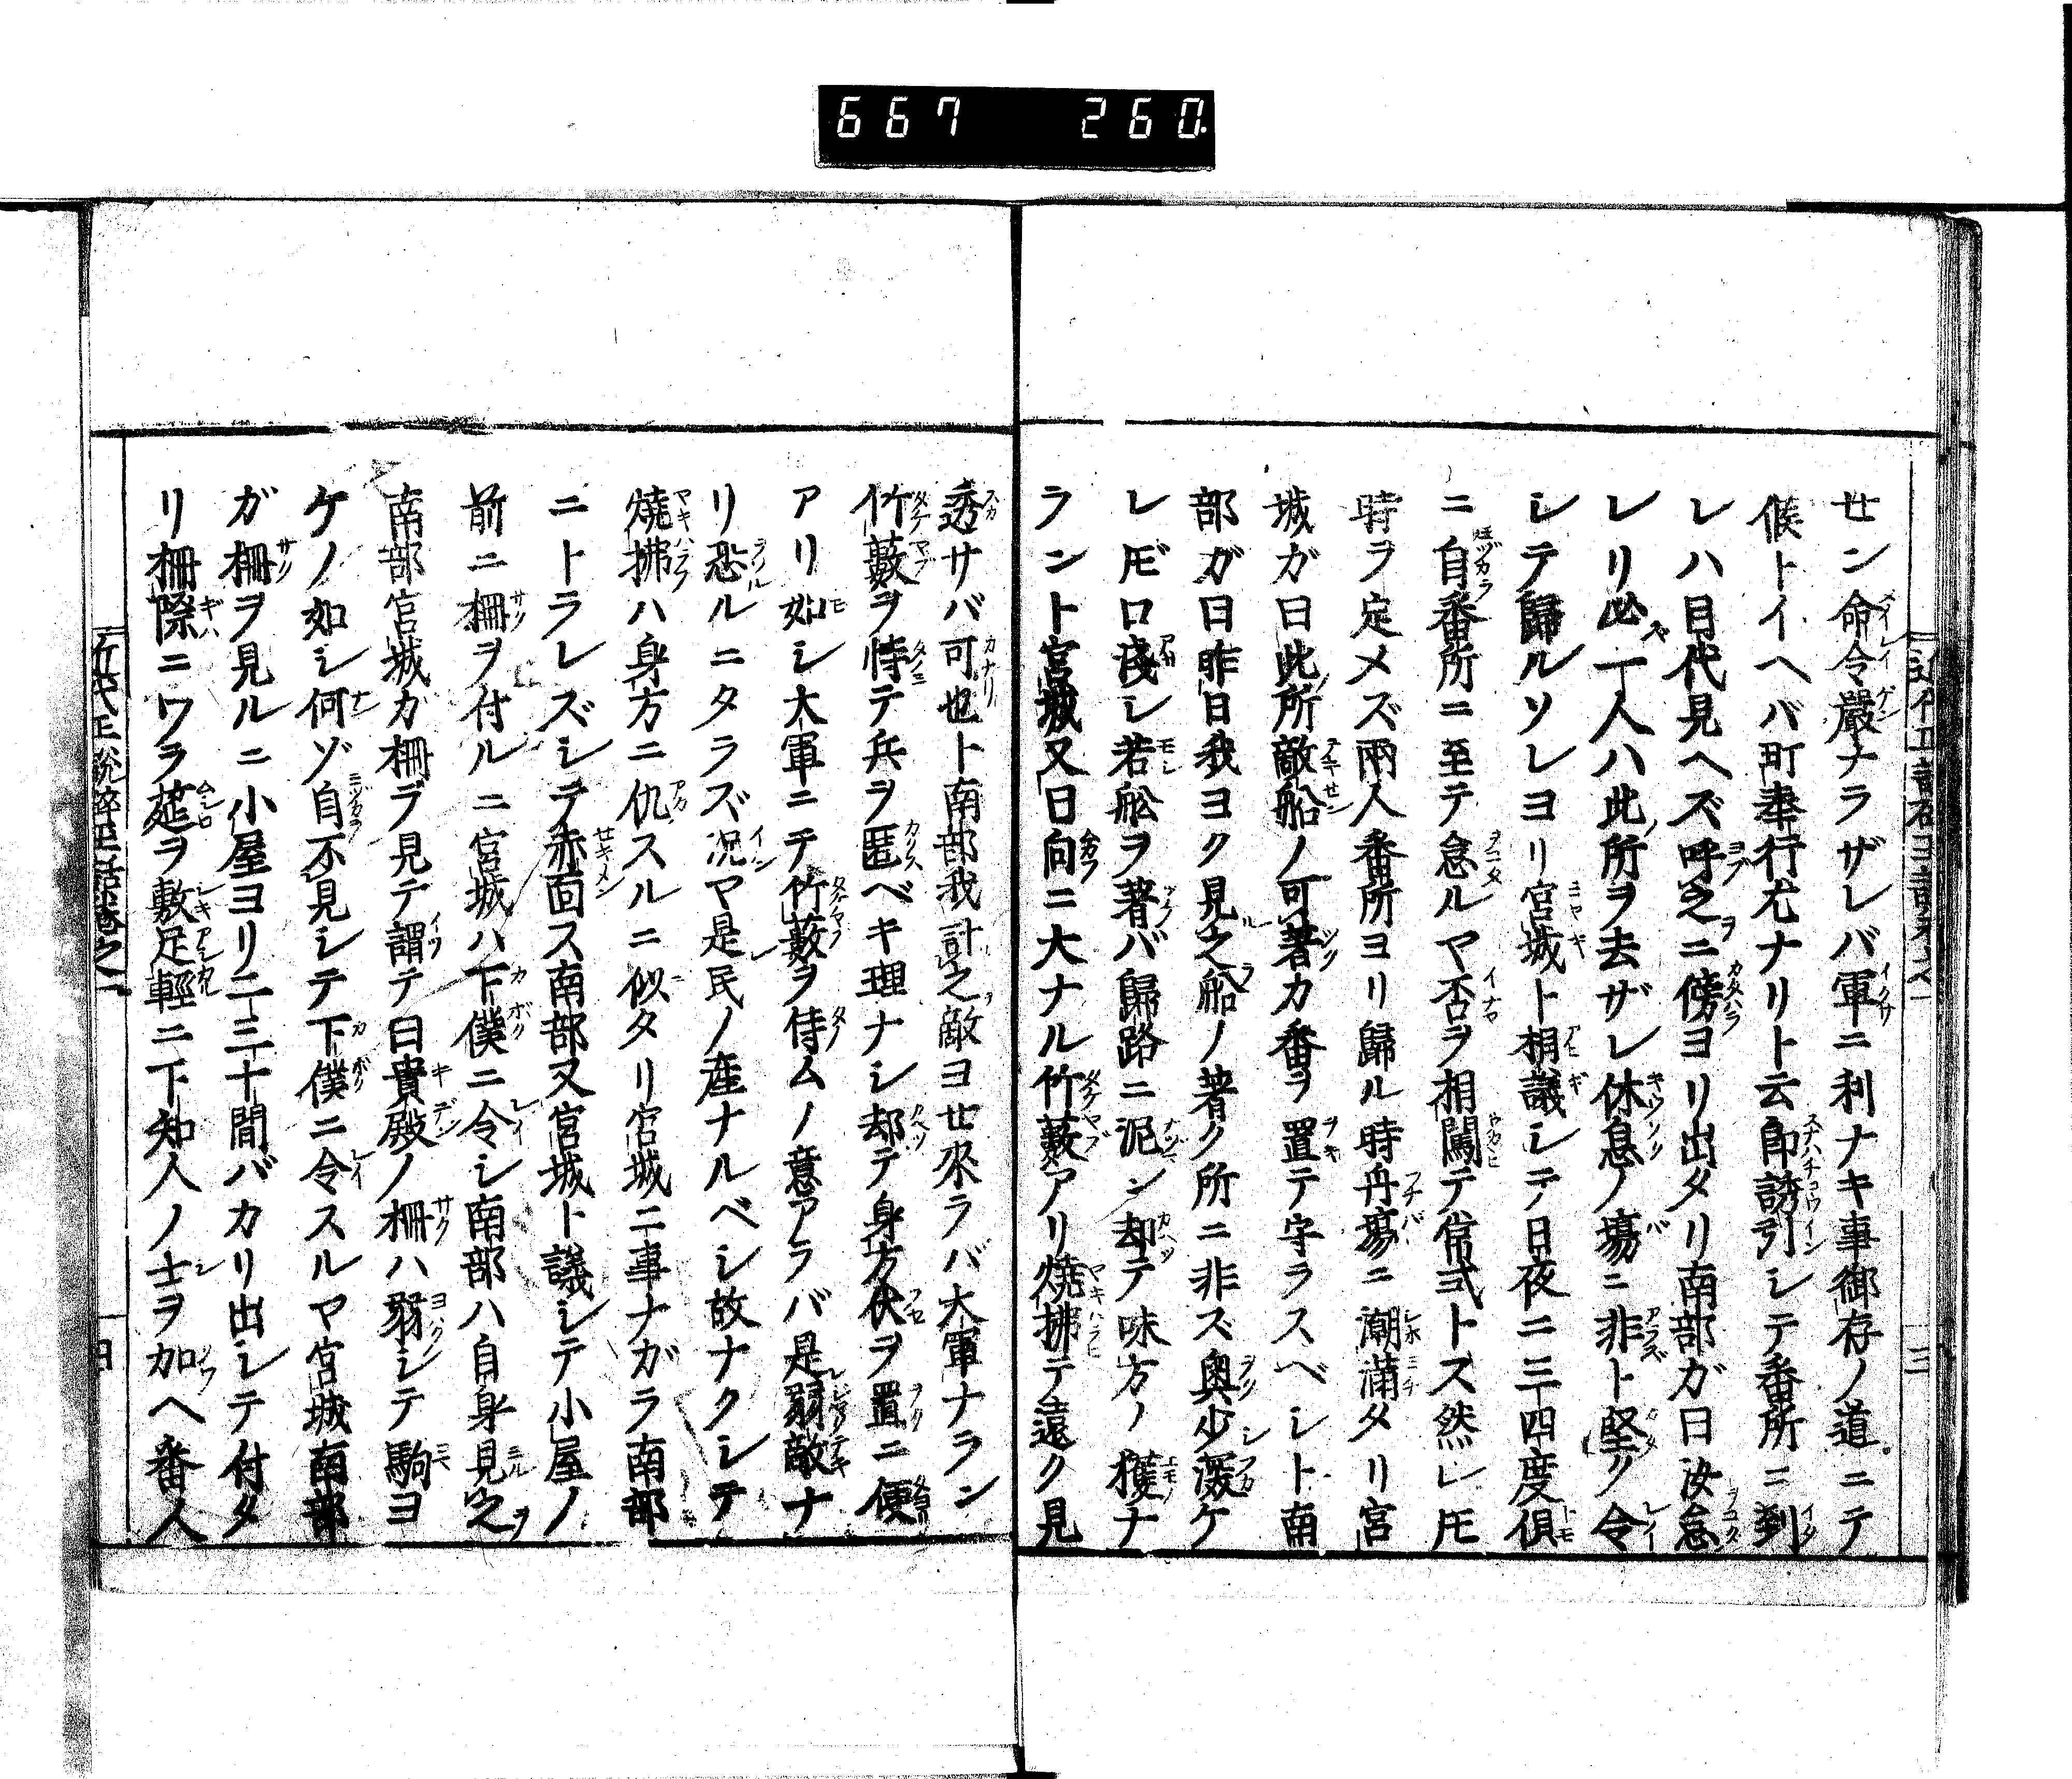 667 260.
セン命令嚴ナラザレバ軍ニ利ナキ事御存ノ道ニテ
候トイヘバ町奉行尤ナリト云即誘引シテ番所ニ到
レハ目代見ヘズ呼之ニ傍ヨリ出タリ南部ガ曰汝怠
レリ必一人ハ此所ヲ去ザレ休息ノ塲ニ非ト堅ク令
シテ歸ルソレヨリ宮城ト相議シテ日夜ニ三四度俱
ニ自番所ニ至テ怠ルマ否ヲ相闖テ常式トス然レ𪜈
時ヲ定メズ兩人番所ヨリ歸ル時舟塲ニ潮滿タリ宮
城ガ曰此所敵船ノ可著カ番ヲ置テ守ラスベシト南
部ガ曰昨日我ヨク見之船ノ著ク所ニ非ズ奥少深ケ
レ𪜈口淺シ若舩ヲ著バ歸路ニ泥ン却テ味方ノ獲ナ
ラント宮城又日向ニ大ナル竹藪アリ燒拂テ遠ク見
透サバ可也ト南部我計之敵ヨセ來ラバ大軍ナラン
竹藪ヲ恃テ兵ヲ匿ベキ理ナシ却テ身方伏ヲ置ニ便
アリ如シ大軍ニテ竹藪ヲ侍ムノ意アラバ是弱敵ナ
リ恐ルニタラズ况マ是民ノ産ナルベシ故ナクシテ
燒拂ハ身方ニ仇スルニ似タリ宮城ニ事ナガラ南部
ニトラレズシテ赤面ス南部又宮城ト議シテ小屋ノ
前ニ柵ヲ付ルニ宮城ハ下僕ニ令シ南部ハ自身見之
南部宮城カ柵ヲ見テ謂テ曰貴殿ノ柵ハ弱シテ駒ヨ
ケノ如シ何ゾ自不見シテ下僕ニ令スルマ宮城南部
ガ柵ヲ見ルニ小屋ヨリ二三十間バカリ出シテ付タ
リ柵際ニワラ筵ヲ敷足輕ニ下知人ノ士ヲ加ヘ番人
近代正説碎玉話卷之一